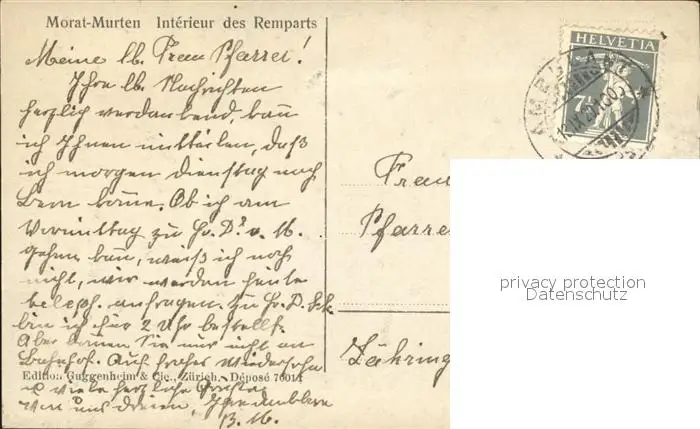 Morat-Murten Intérieur des Remparts
Meine lb. Frau Pfarrer!
Ihre lb. Nachrichten
herzlich verdankend, kann
ich Ihnen mitteilen, daß
ich morgen Dienstag nach
Bern komme. Ob ich am
Vormittag zu Hr. Dr. v. M.
gehen kann, weiß ich noch
nicht, wir werden heute
teleph. anfragen. Zu Hr. D.
bin ich für 2 Uhr bestellt.
Aber kommen Sie nur nicht an
Bahnhof. Auf frohes Wiedersehn
Editio: Guggenheim & Cie., Zürich. Déposé 76014
u viele herzliche Grüsse
von uns dreien,
B. M.
HELVETIA
7½
Frau
Pfarrer
Zähring
privacy protection
Datenschutz